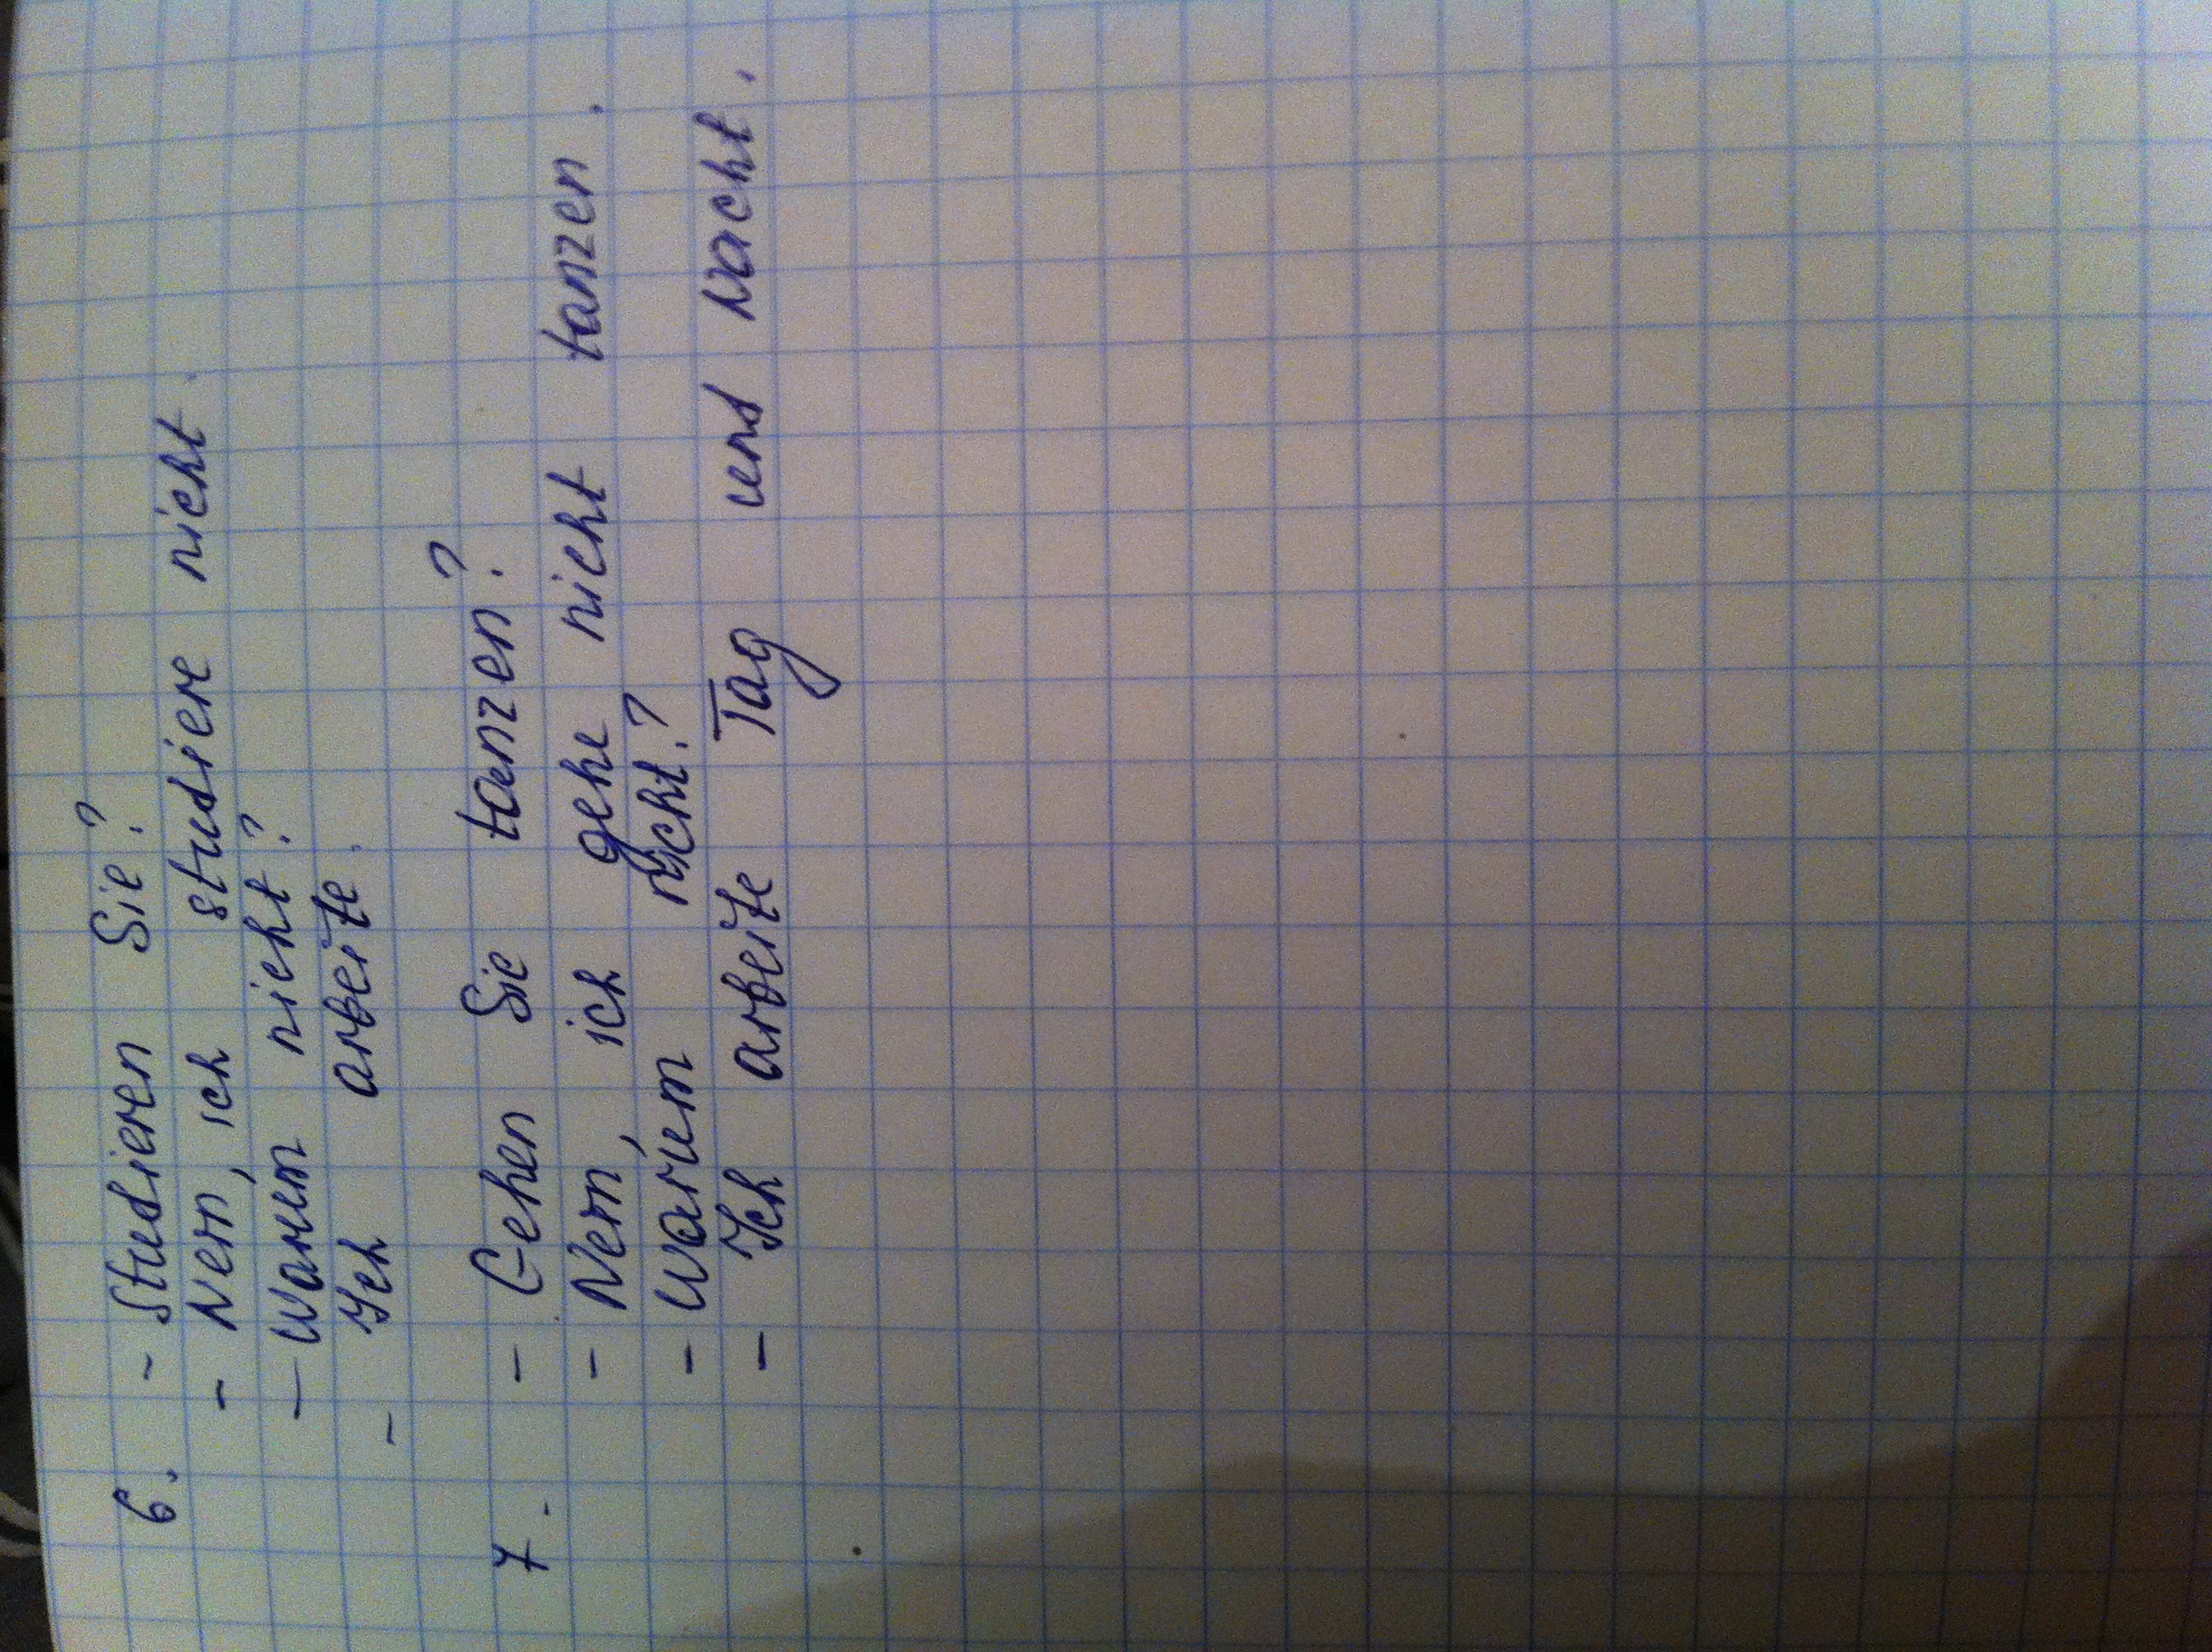 6. - Studieren Sie?
- Nein, ich studiere nicht.
- Warum nicht?
- Ich arbeite.
7. - Gehen Sie tanzen?
- Nein, ich gehe nicht tanzen.
- Warum nicht?
- Ich arbeite Tag und Nacht.